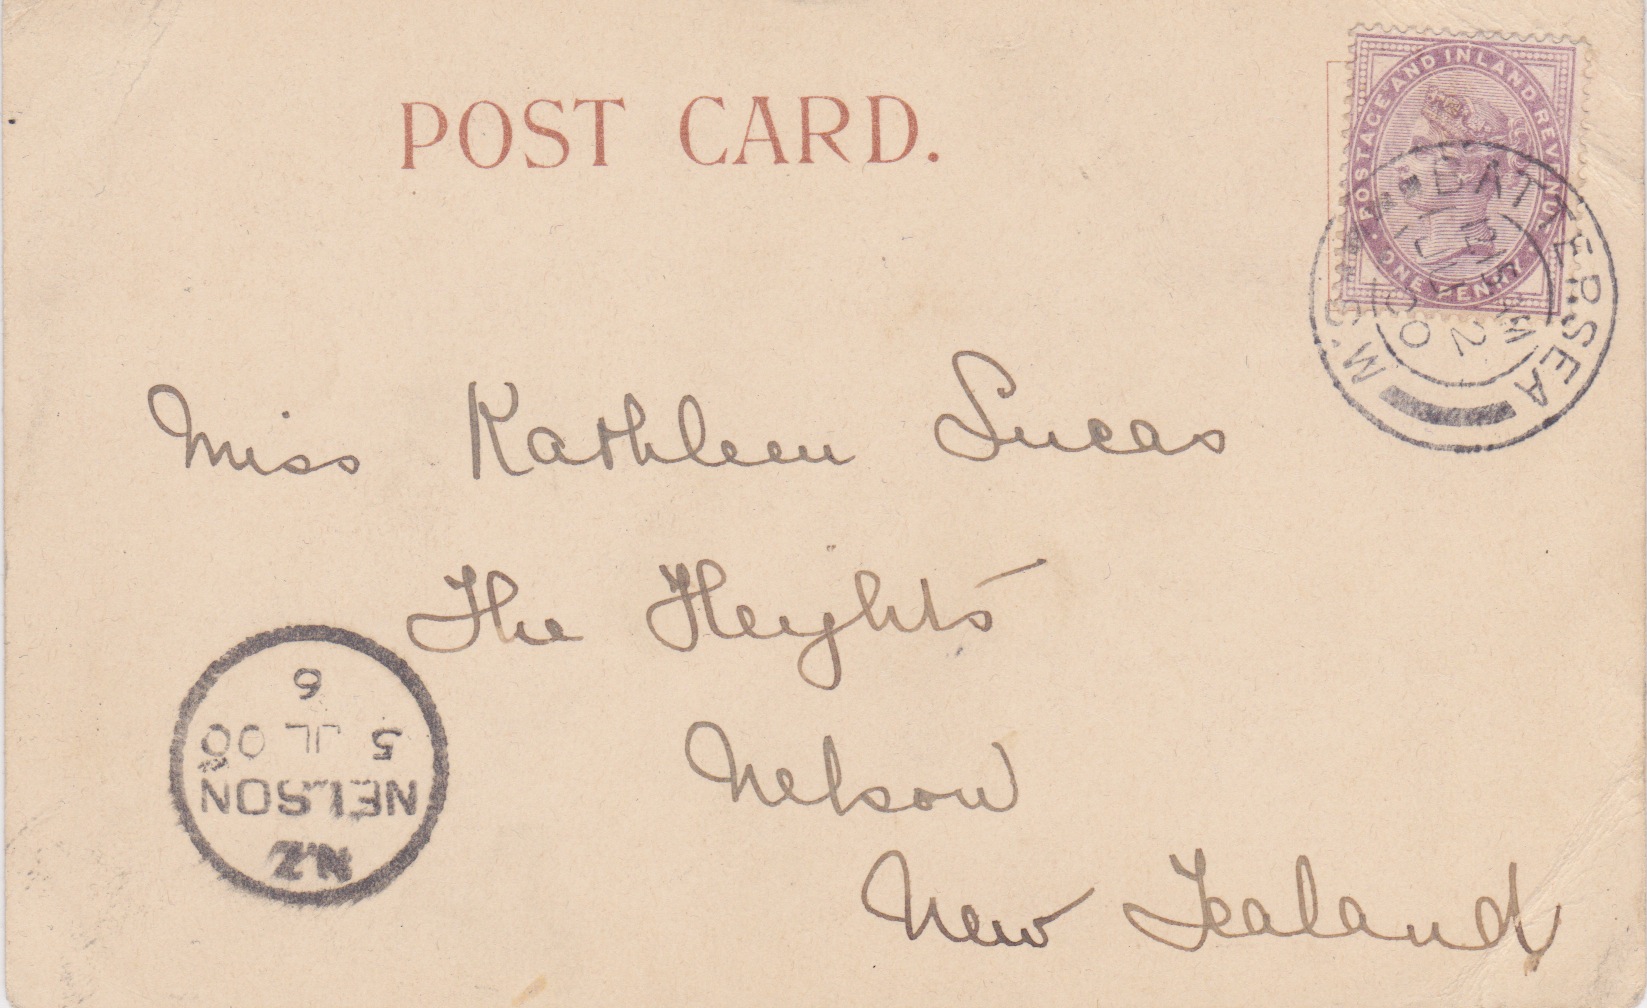 POST CARD.
POSTAGE AND INLAND REVENUE
ONE PENNY
BATTERSEA
M.S.O.
2
00
Miss Kathleen Lucas
The Heights
Nelson
New Zealand
N.Z
NELSON
5 JL 00
6